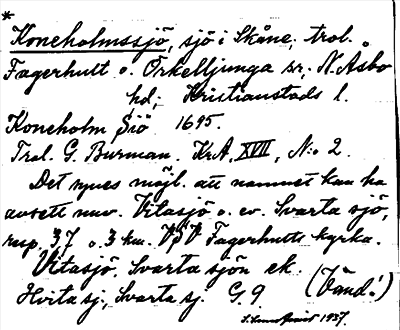 *
Koneholmssjö, sjö i Skåne, trol.
Fagerhult o. Örkelljunga sr, N. Åsbo
hd, Kristianstads l.
Koneholm Siö 1695.
Trol. G. Burman. KrA, XVII, N:o 2.
Det synes möjl. att namnet kan ha
avsett nuv. Vitasjö o. ev. Svarta sjö,
resp. 3,7 o. 3 km. VSV Fagerhults kyrka.
Vitasjö, Svarta sjön ek. (Vänd!)
Hvita sj., Svarta sj. G. 9
1937